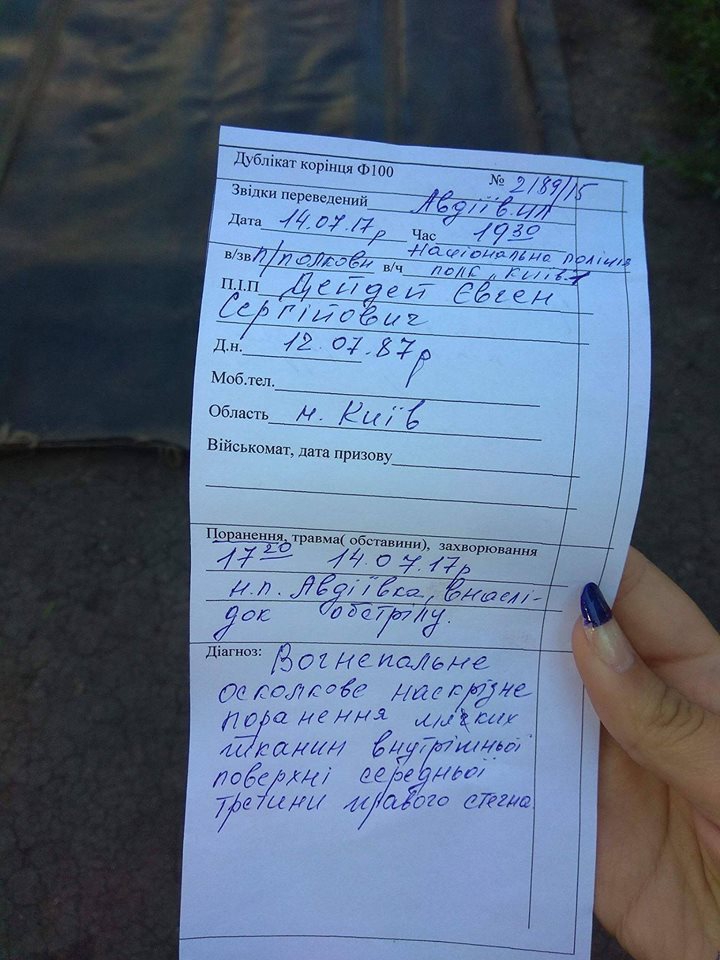 Дублікат корінця Ф100
№ 2189/15
Звідки переведений Авдіїв.ЦЛ
Дата 14.07.17р Час 19 30
в/зв п/полковн в/ч Національна поліція
полк "Київ"
П.І.П Дейдей Євген
Сергійович
Д.н. 12.07.87р
Моб.тел.
Область м. Київ
Військомат, дата призову
Поранення, травма( обставини), захворювання
17 20 14.07.17р
н.п. Авдіївка, внаслі-
док обстрілу.
Діагноз: Вогнепальне
осколкове наскрізне
поранення мягких
тканин внутрішньої
поверхні середньої
третини правого стегна